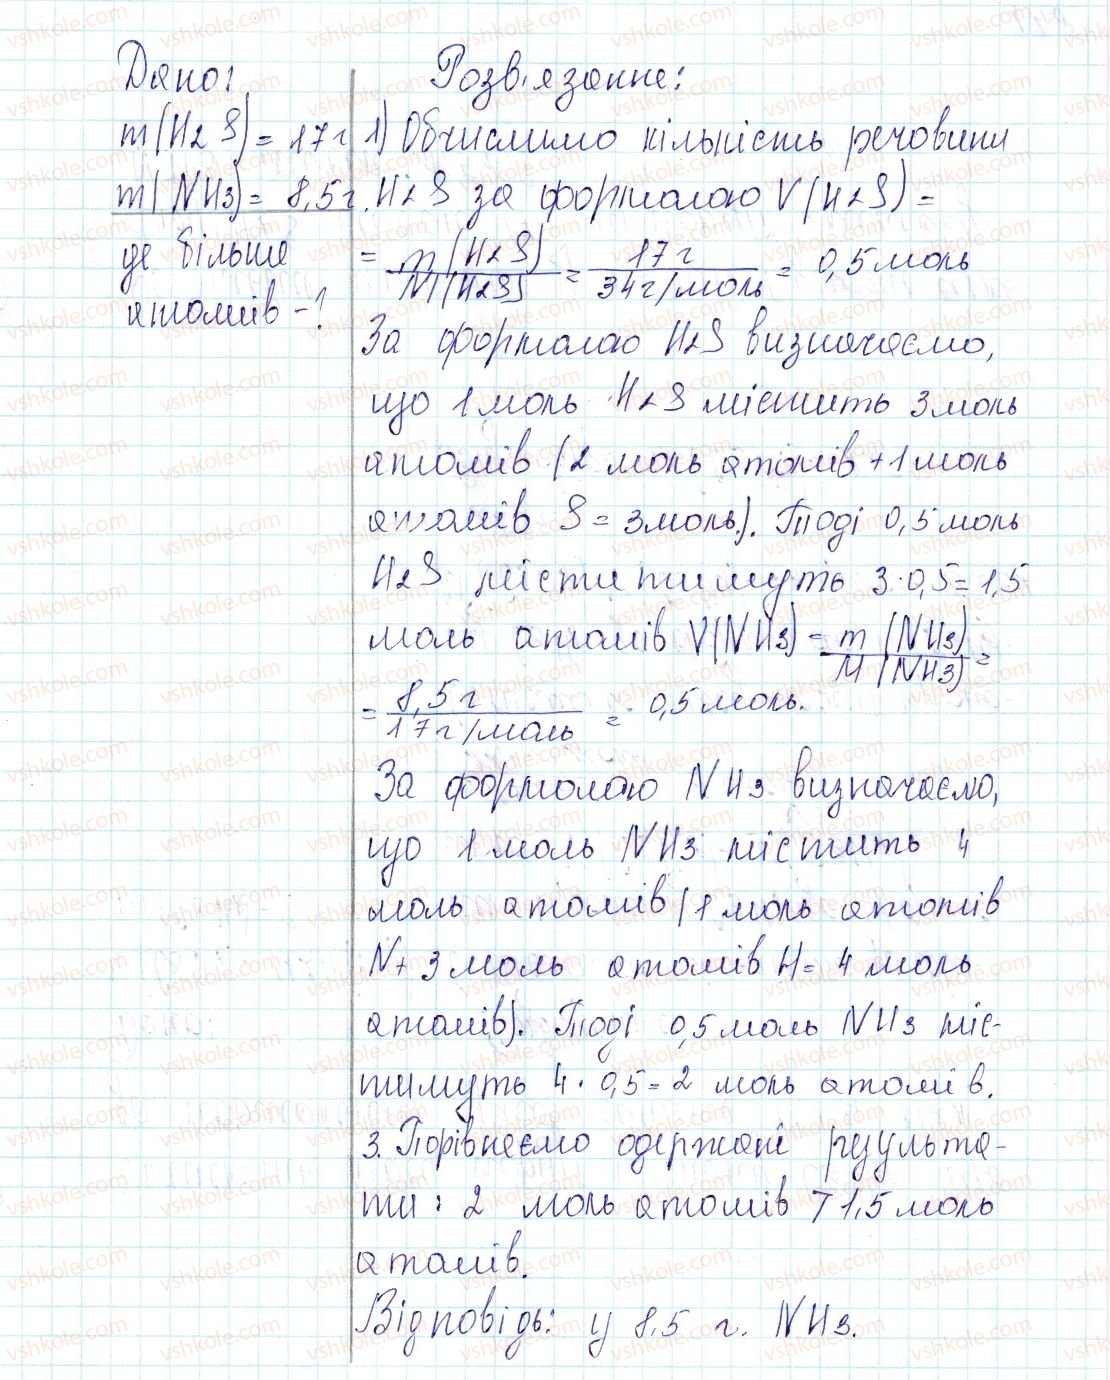 Дано:
m(H2S) = 17г
m(NH3) = 8,5г.
де більше
атомів - ?
Розв'язання:
1) Обчислимо кількість речовини
H2S за формолаю V(H2S) =
= m(H2S) / M(H2S) = 17г / 34г/моль = 0,5моль
За формолаю H2S визначаємо,
що 1моль H2S містить 3моль
атомів (2 моль атомів + 1моль
атомів S = 3моль.). Тоді 0,5моль
H2S міститимуть 3·0,5=1,5
моль атомів V(NH3) = m(NH3) / M(NH3) =
= 8,5г / 17г/моль = 0,5моль.
За формолаю NH3 визначаємо,
що 1моль NH3 містить 4
моль атомів (1моль атомів
N+ 3моль атомів H= 4моль
атомів). Тоді 0,5моль NH3 міс-
тимуть 4·0,5=2 моль атомів.
3. Порівнюємо одержані результа-
ти: 2 моль атомів > 1,5моль
атомів.
Відповідь: у 8,5 г. NH3.